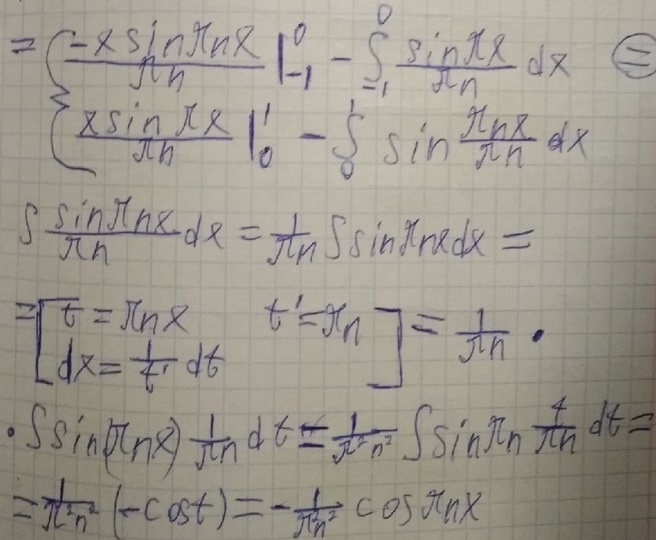 = { -x sin πnx / πn |₋₁⁰ - ∫₋₁⁰ sin πx / πn dx =
x sin πx / πn |₀¹ - ∫₀¹ sin πnx / πn dx
∫ sin πnx / πn dx = 1/πn ∫ sin πnx dx =
= [ t = πnx t' = πn ] = 1/πn ·
dx = 1/t' dt
· ∫ sin(πnx) 1/πn dt = 1/π²n² ∫ sin πn t/πn dt =
= 1/π²n² (-cos t) = - 1/π²n² cos πnx